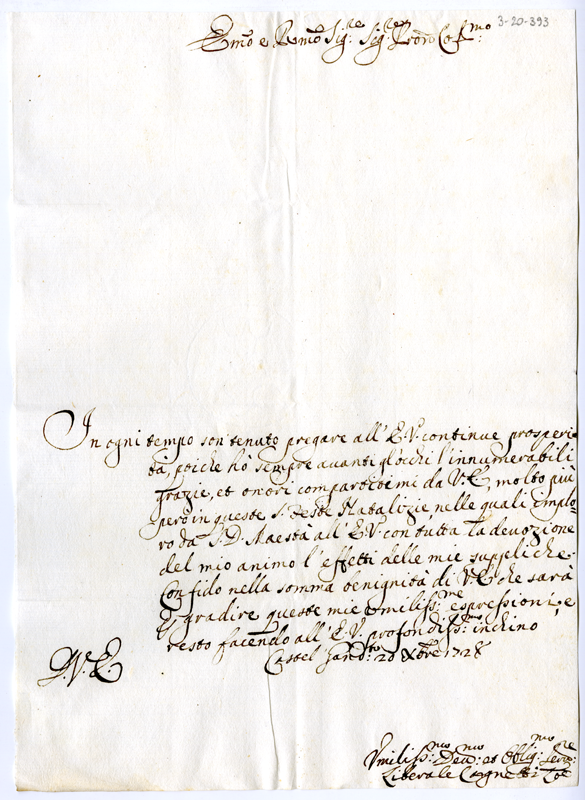 3-20-393
Emo e Rmo Sig:re Sig:re Prone Col:mo
In ogni tempo son tenuto pregare all' E.V. continue prosperi=
tà, poiche hò sempre avanti gl'ochi l'innumerabili
grazie, et onori compartitimi da V.E., molto più
però in queste S. Feste Natalizie, nelle quali implo=
ro da S.D. Maestà all' E.V. con tutta la devozione
del mio animo l'effetti delle mie suppliche.
Confido nella somma benignità di V.E. che sarà
p gradire queste mie umiliss:me espressioni, e
resto facendo all' E.V. profondiss:mo inchino
Castel Gand:fo 20 Xbre 1728
D.V.E.
Vmiliss:mo Deu:mo et Obblig:mo Serv:re
Liberale Cagnetti